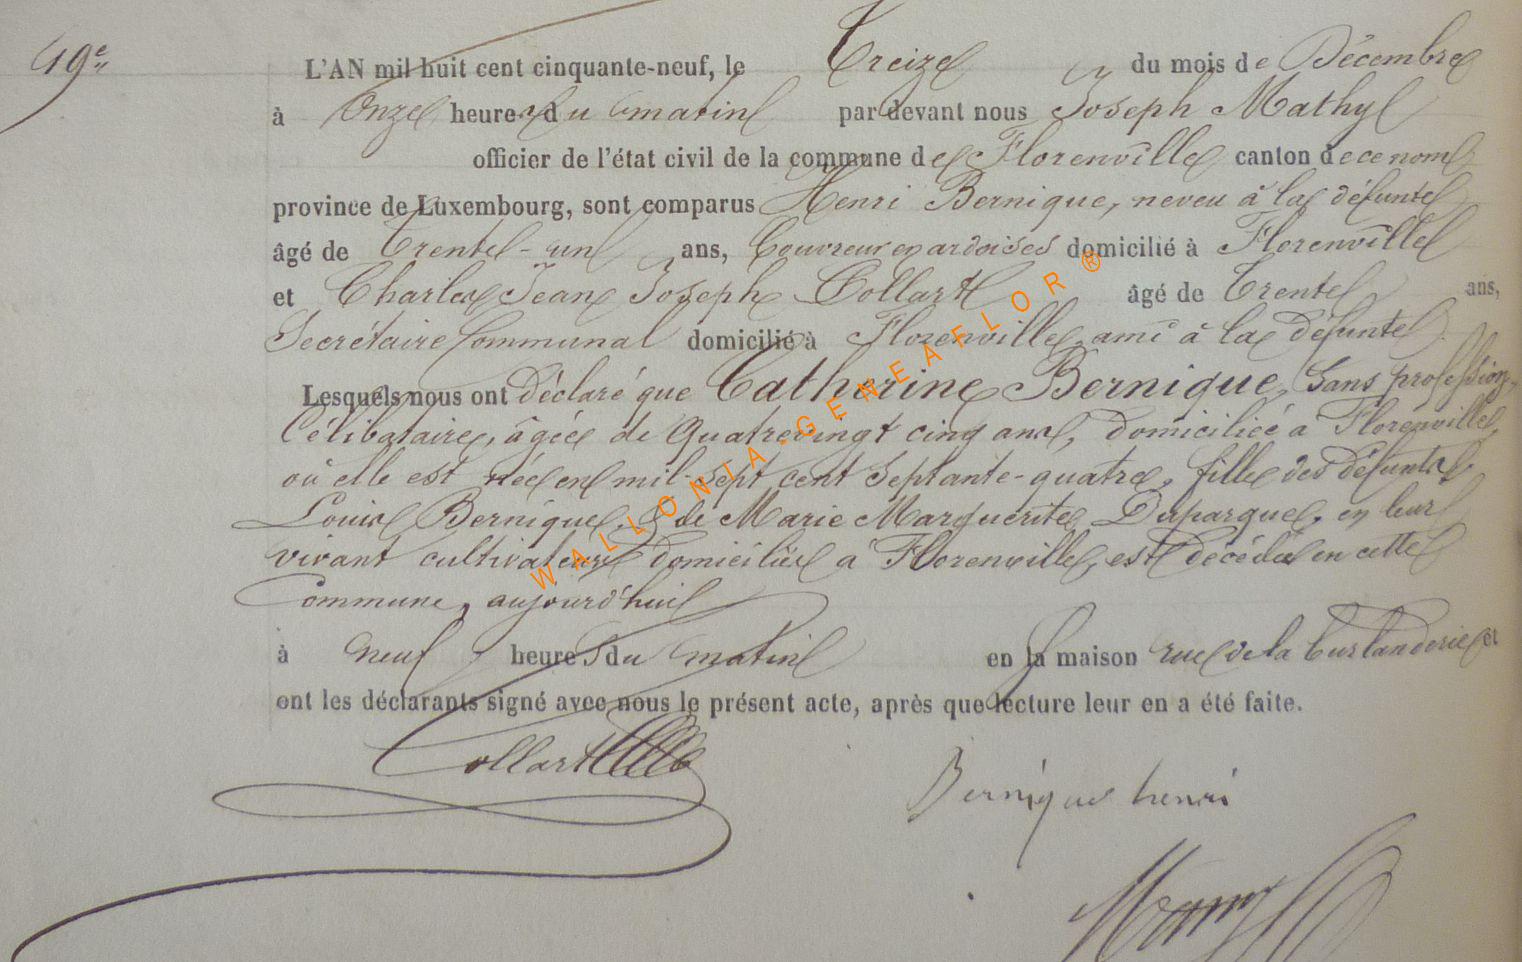 49e
L'AN mil huit cent cinquante-neuf, le Treize du mois de Décembre
à Onze heures du matin par devant nous Joseph Mathy
officier de l'état civil de la commune de Florenville canton de ce nom
province de Luxembourg, sont comparus Henri Bernique, neveu à la défunte
âgé de Trente-un ans, Couvreur en ardoises domicilié à Florenville
et Charles Jean Joseph Collart âgé de Trente ans,
Secrétaire Communal domicilié à Florenville, ami à la défunte
Lesquels nous ont déclaré que Catherine Bernique, Sans profession,
Célibataire, âgée de Quatrevingt cinq ans, domiciliée à Florenville,
où elle est née en mil-sept cent Septante-quatre, fille des défunts
Louis Bernique, & de Marie Marguerite Duparque, en leur
vivant cultivateurs domiciliés à Florenville, est décédée en cette
Commune, aujourd'hui
à neuf heures du matin en sa maison rue de la et
ont les déclarants signé avec nous le présent acte, après que lecture leur en a été faite.
Collart
Bernique henri
Mathy
WALLONIA-GENEAFLOR ®